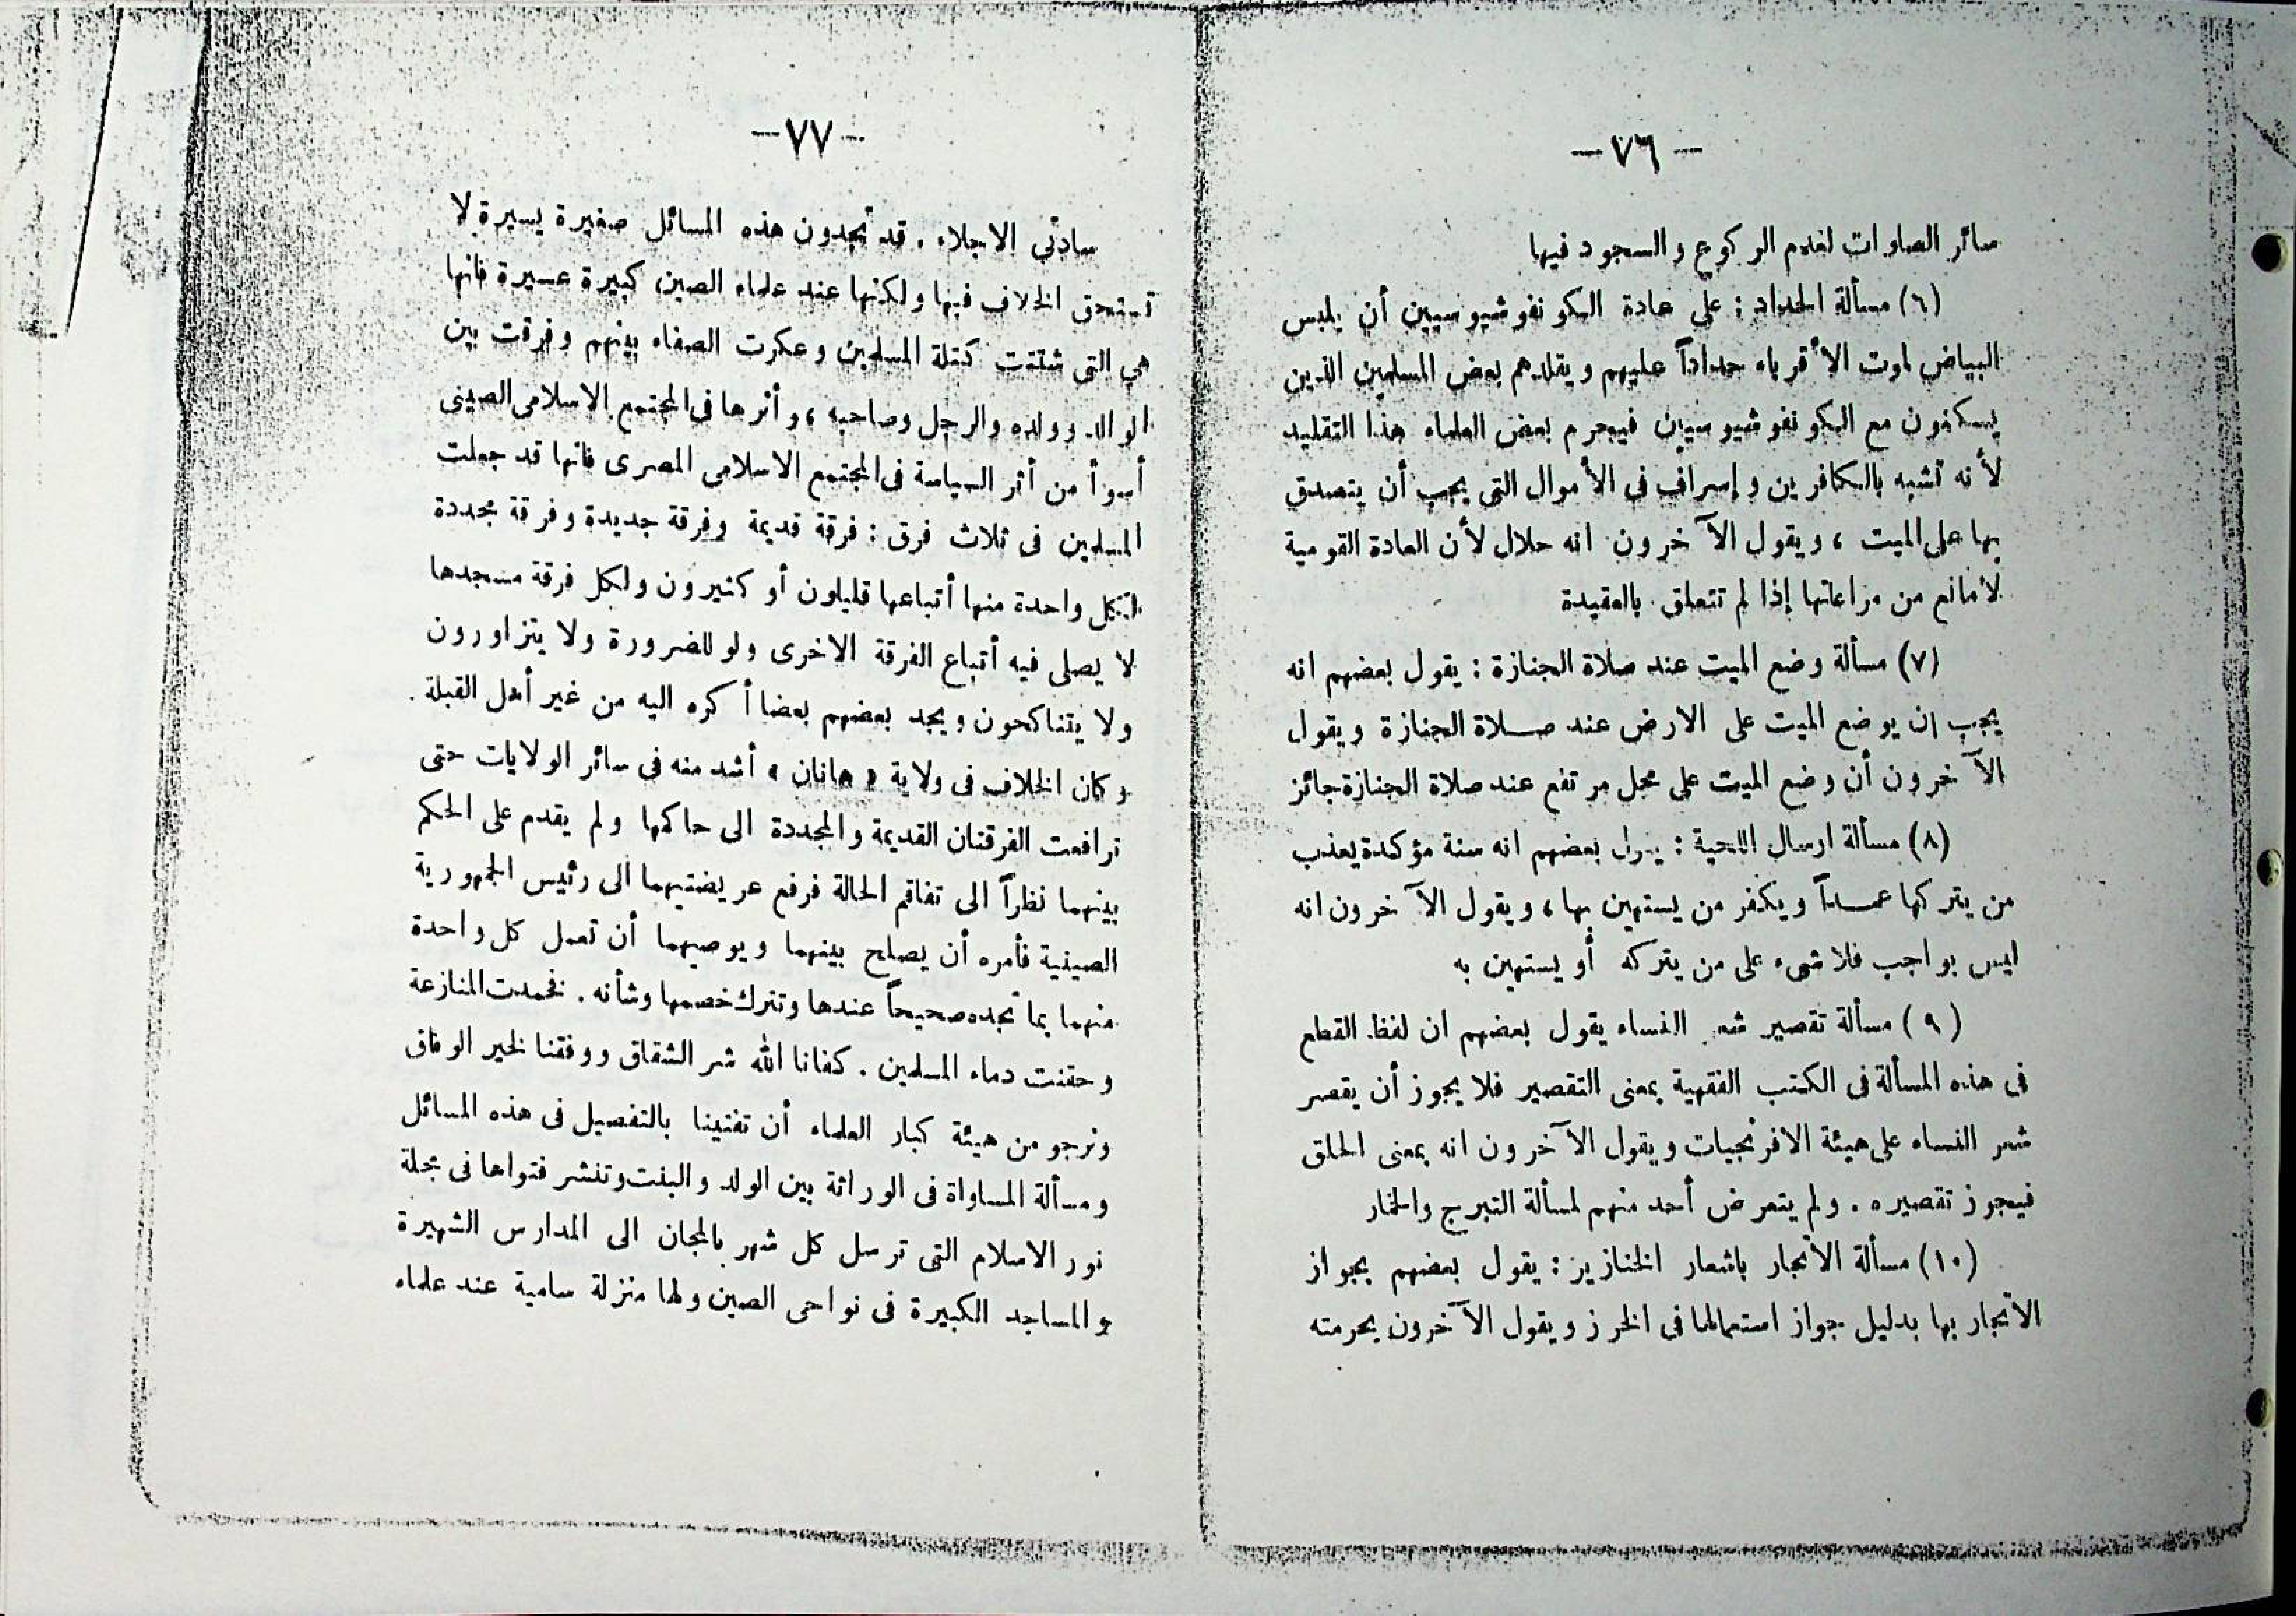 — ٧٦ —
سائر الصلوات لعدم الركوع والسجود فيها
(٦) مسألة الحداد : على عادة الكونفوشيوسيين أن يلبس
البياض لموت الأقرباء حداداً عليهم ويقلدهم بعض المسلمين الذين
يسكنون مع الكونفوشيوسيين فيحرم بعض العلماء هذا التقليد
لأنه تشبه بالكافرين وإسراف فى الأموال التى يجب أن يتصدق
بها على الميت ، ويقول الآخرون انه حلال لأن العادة القومية
لا مانع من مراعاتها إذا لم تتعلق بالعقيدة
(٧) مسألة وضع الميت عند صلاة الجنازة : يقول بعضهم انه
يجب ان يوضع الميت على الارض عند صلاة الجنازة ويقول
الآخرون أن وضع الميت على محل مرتفع عند صلاة الجنازة جائز
(٨) مسألة ارسال اللحية : يقول بعضهم انه سنة مؤكدة يعذب
من يتركها عمداً ويكفر من يستهين بها ، ويقول الآخرون انه
ليس بواجب فلا شىء على من يتركه أو يستهين به
(٩) مسألة تقصير شعر النساء يقول بعضهم ان لفظ القطع
فى هذه المسألة فى الكتب الفقهية بمعنى التقصير فلا يجوز أن يقصر
شعر النساء على هيئة الافرنجيات ويقول الآخرون انه بمعنى الحلق
فيجوز تقصيره . ولم يتعرض أحد منهم لمسألة التبرج والخمار
(١٠) مسألة الاتجار باشعار الخنازير : يقول بعضهم بجواز
الاتجار بها بدليل جواز استعمالها فى الخرز ويقول الآخرون بحرمته
— ٧٧ —
سادتى الاجلاء . قد تجدون هذه المسائل صغيرة يسيرة لا
تستحق الخلاف فيها ولكنها عند علماء الصين كبيرة عسيرة فانها
هي التى شتتت كتلة المسلمين وعكرت الصفاء بينهم وفرقت بين
الوالد وولده والرجل وصاحبه ، وأثرها فى المجتمع الاسلامى الصينى
أسوأ من أثر السياسة فى المجتمع الاسلامى المصرى فانها قد جعلت
المسلمين فى ثلاث فرق : فرقة قديمة وفرقة جديدة وفرقة مجددة
لكل واحدة منها أتباعها قليلون أو كثيرون ولكل فرقة مسجدها
لا يصلى فيه أتباع الفرقة الاخرى ولو للضرورة ولا يتزاورون
ولا يتناكحون ويجد بعضهم بعضا أكره اليه من غير أهل القبلة .
وكان الخلاف فى ولاية « هانان » أشد منه فى سائر الولايات حتى
ترافعت الفرقتان القديمة والمجددة الى حاكمها ولم يقدم على الحكم
بينهما نظراً الى تفاقم الحالة فرفع عريضتيهما الى رئيس الجمهورية
الصينية فأمره أن يصلح بينهما ويوصيهما أن تعمل كل واحدة
منهما بما تجده صحيحاً عندها وتترك خصمها وشأنه . فخمدت المنازعة
وحقنت دماء المسلمين . كفانا الله شر الشقاق ووفقنا لخير الوفاق
ونرجو من هيئة كبار العلماء أن تفتينا بالتفصيل فى هذه المسائل
ومسألة المساواة فى الوراثة بين الولد والبنت وتنشر فتواها فى مجلة
نور الاسلام التى ترسل كل شهر بالمجان الى المدارس الشهيرة
والمساجد الكبيرة فى نواحى الصين ولها منزلة سامية عند علماء